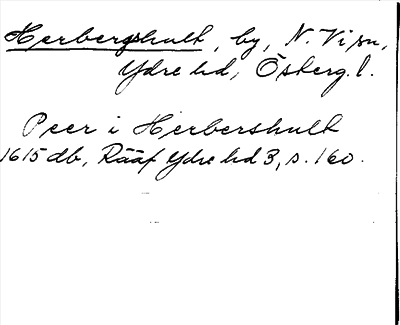 Herbergshult, by, N. Vi sn,
Ydre hd, Österg. l.
Peer i Herbershult
1615 db, Rääf Ydre hd 3, s. 160.